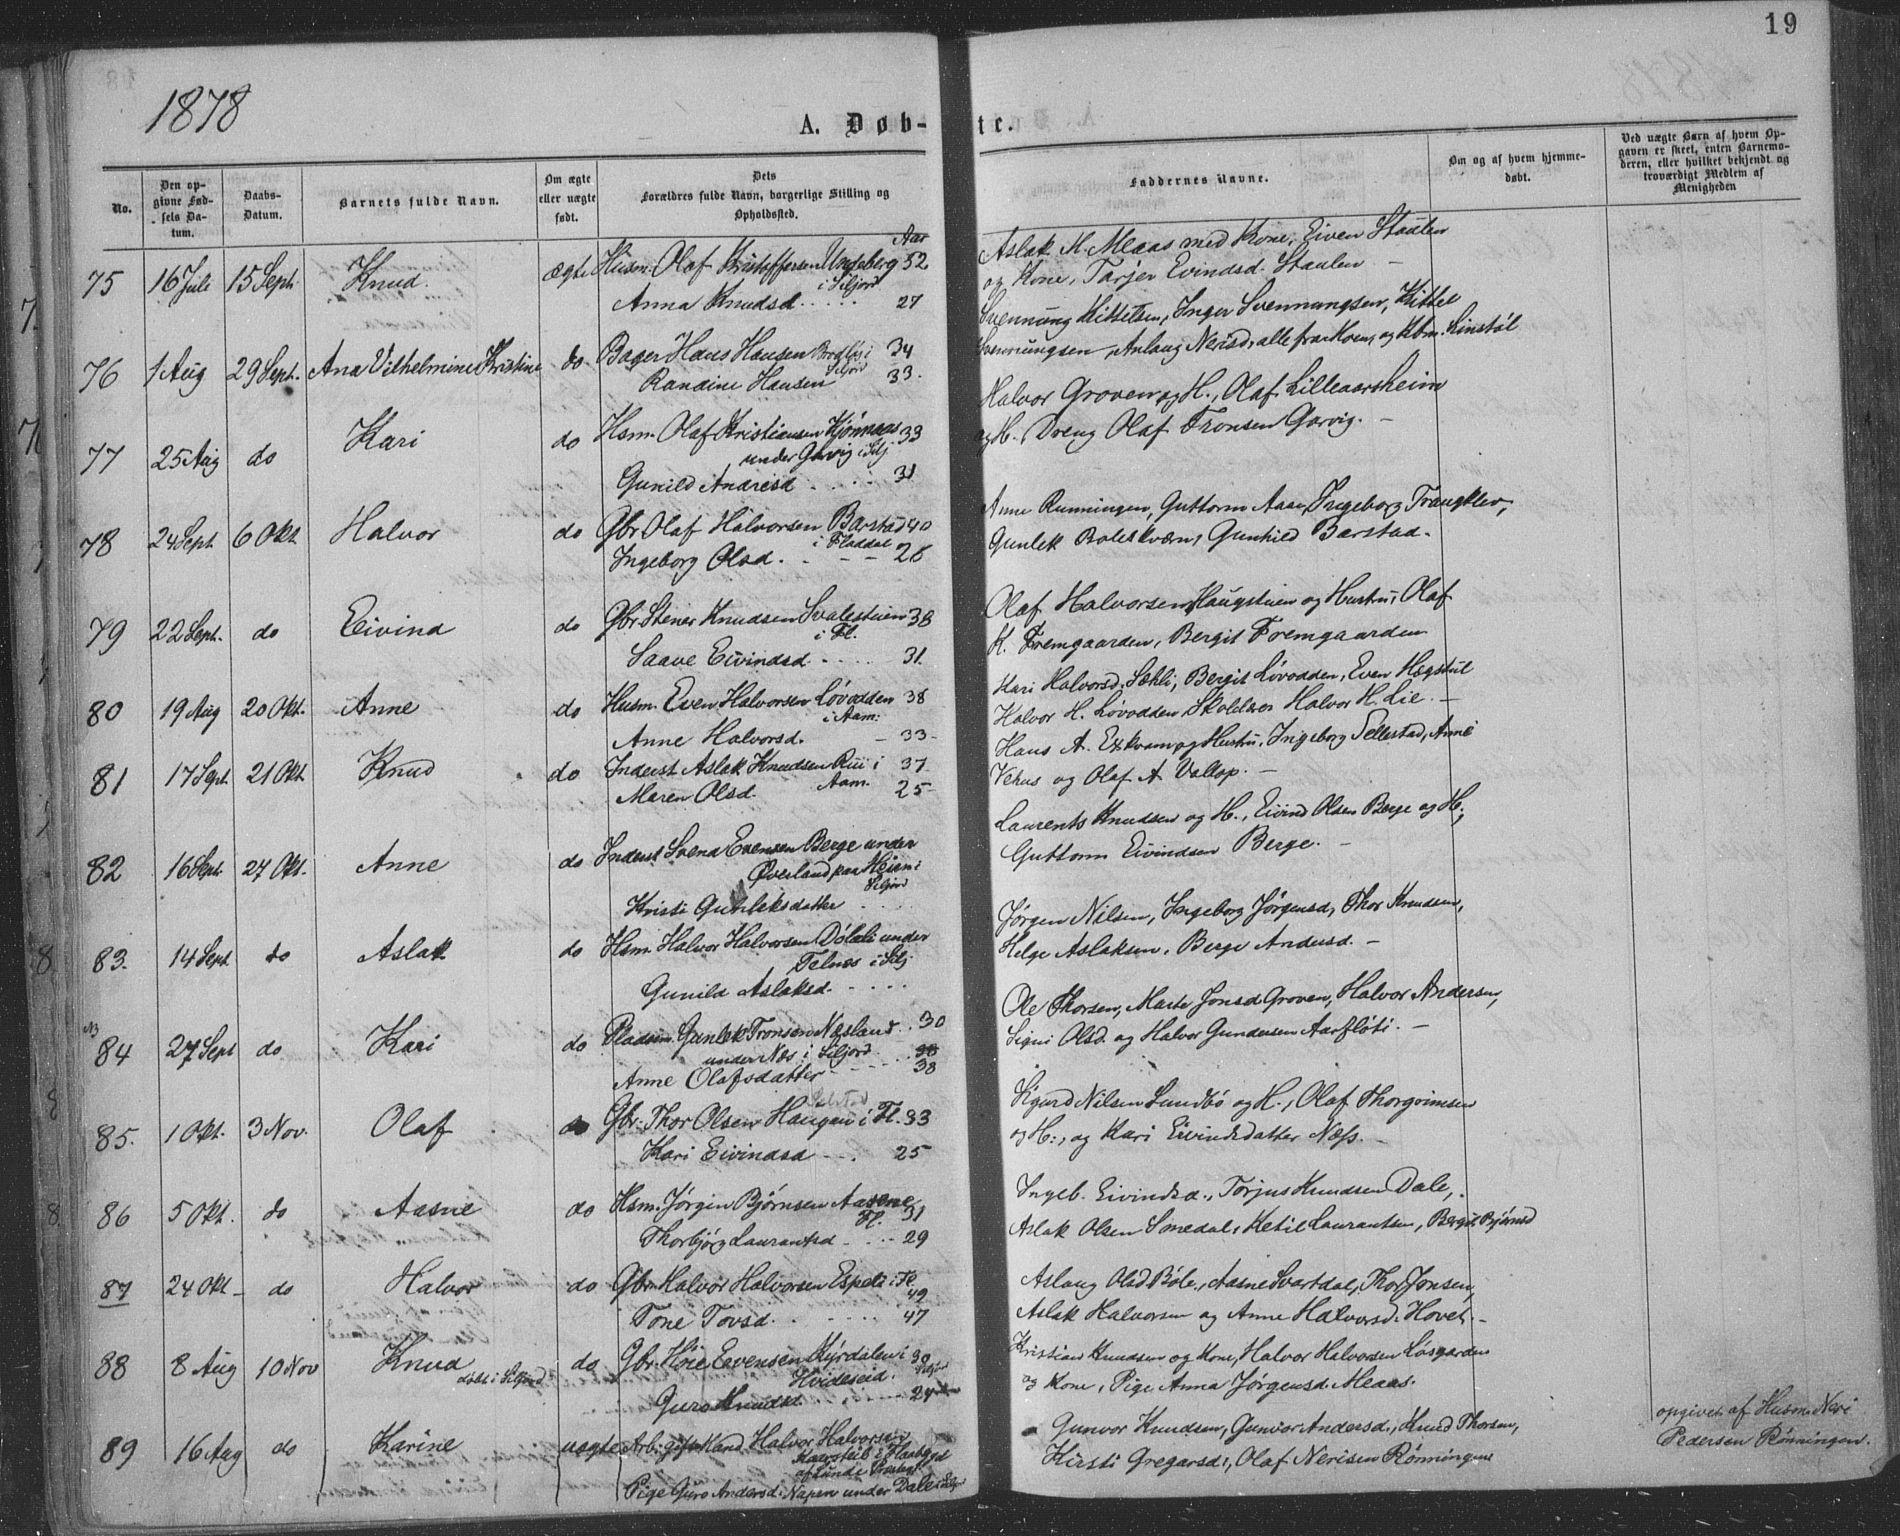 19
1878
A. Døb-
te.
No.
Den op-
givne Fød-
sels Da-
tum.
Daabs-
Datum.
Barnets fulde Navn.
Om ægte
eller uægte
født.
Dets
Forældres fulde Navn, borgerlige Stilling og
Opholdssted.
Faddernes Navne.
Om og af hvem hjemme-
døbt.
Ved uægte Barn af hvem Op-
gaven er skeet, enten Barnemo-
deren, eller hvilket bekjendt og
troværdigt Medlem af
Menigheden
Aar
75 16 Juli 15 Sept. Knud. ægte Husm. Olaf Kristoffersen Ungeberg 52
i Siljord
Anna Knudsd. 27
Aslak H. Meaas med Kone, Eiven Staulen
og Kone, Tarjer Evindsd. Staulen –
76 1 Aug 29 Sept. Ana Vilhelmine Kristine do Bager Hans Hansen i 34
Siljord
Randine Hansen 33.
Svennung Kittilsen, Inger Svennungsen, Kittel
Svennungsen, Aslaug Nerisd, alle fra Moen, og Kbm. Linstøl
77 25 Aug do Kari do Hsm. Olaf Kristiansen Kjønnaas 33
under Garvig i Slj
Gunild Andresd 31
Halvor Groven og H., Olaf Lilleaarsheim
og H. Dreng Olaf Tronsen Garvig. –
78 24 Sept 6 Okt. Halvor do Gbr Olaf Halvorsen Barstad 40
i Fladdal
Ingeborg Olsd. 26
Anne Runningen, Guttorm Aase, Ingeborg Trangklev,
Gunlek Boleskværn, Gunhild Barstad.
79 22 Sept. do Eivind do Gbr Stener Knudsen Svalestuen 38
i Fl.
Saave Eivindsd. 31.
Olaf Halvorsen Haugstuen og Hustru, Olaf
K. Fremgaarden, Bergit Fremgaarden
80 19 Aug 20 Okt. Anne do Husm. Even Halvorsen Løvodden 38
i Aam:
Anne Halvorsd. 33
Kari Halvorsd. Sæhli, Bergit Løvodden, Even Hægstul
Halvor H. Løvodden Skolelærer Halvor H. Lie. –
81 17 Sept. 21 Okt Knud do Inderst Aslak Knudsen Rui i 37
Aam.
Maren Olsd. 25
Hans A. Exkvam og Hustru, Ingeborg Sellestad, Anne
Vehus og Olaf A Vallop. –
82 16 Sept. 27 Okt. Anne do Inderst Svend Evensen Berge under
Øverland paa Heien i
Siljord
Kristi Gunleksdatter
Laurents Knudsen og H., Eivind Olsen Berge og H.,
Guttorm Eivindsen Berge. –
83. 14 Sept. do Aslak do Hsm. Halvor Halvorsen Dølali under
Telnes i Slj
Gunild Aslaksd.
Jørgen Nilsen, Ingeborg Jørgensd, Thor Knudsen,
Helge Aslaksen, Berge Andersd. –
84 27 Sept do Kari do Pladsm. Gunlek Tronsen Næsland 30
under Næs i Siljord
Anne Olafsdatter 38
Ole Thorsen, Marte Jonsd Groven, Halvor Andersen,
Signi Olsd. og Halvor Gundersen Aarfløti. –
85. 1 Okt. 3 Nov. Olaf do Gbr. Thor Olsen Haugen i Fl. 33
Kari Eivindsd 25
Sigurd Nilsen Sundbø og H., Olaf Thorgrimsen
og H:, og Kari Eivindsdatter Næss. –
86 5 Okt. do Aasne do Hsm. Jørgen Bjørnsen Aasene
Fl. 31
Thorbjørg Laurantsd 29
Ingeb. Eivindsd., Torjus Knudsen Dale,
Aslak Olsen Smedal, Ketil Laurantsen, Bergit Bjørnsd
87 24 Okt – do Halvor do Gbr. Halvor Halvorsen Espeli i Fl.
49
Tone Tovsd. 47
Aslaug Olsd Bøle, Aasne Svartdal, Thor Jonsen,
Aslak Halvorsen og Anne Halvorsd. Hovet. –
88 8 Aug 10 Nov Knud do Gbr. Høie Eevensen Kyrdalen i 30
døbt i Siljord Hvideseid.
Guro Knudsd. 24
Kristian Knudsen og Kone, Halvor Halvorsen Løsgarden
og Kone, Pige Anna Jørgensd. Meaas.
89 16 Aug do Karine uægte Arb. gift Mand Halvor Halvorsen
Kaarstul E Flaabygd
af Lunde Præstgj.
Pige Guro Andersd. Napen under Dale i Siljd
Gunvor Knudsen, Gunvor Andersd., Knud Thorsen,
Kirsti Gregarsd., Olaf Nerisen Rønningen
opgivet af Husm. Neri
Pedersen Rønningen.